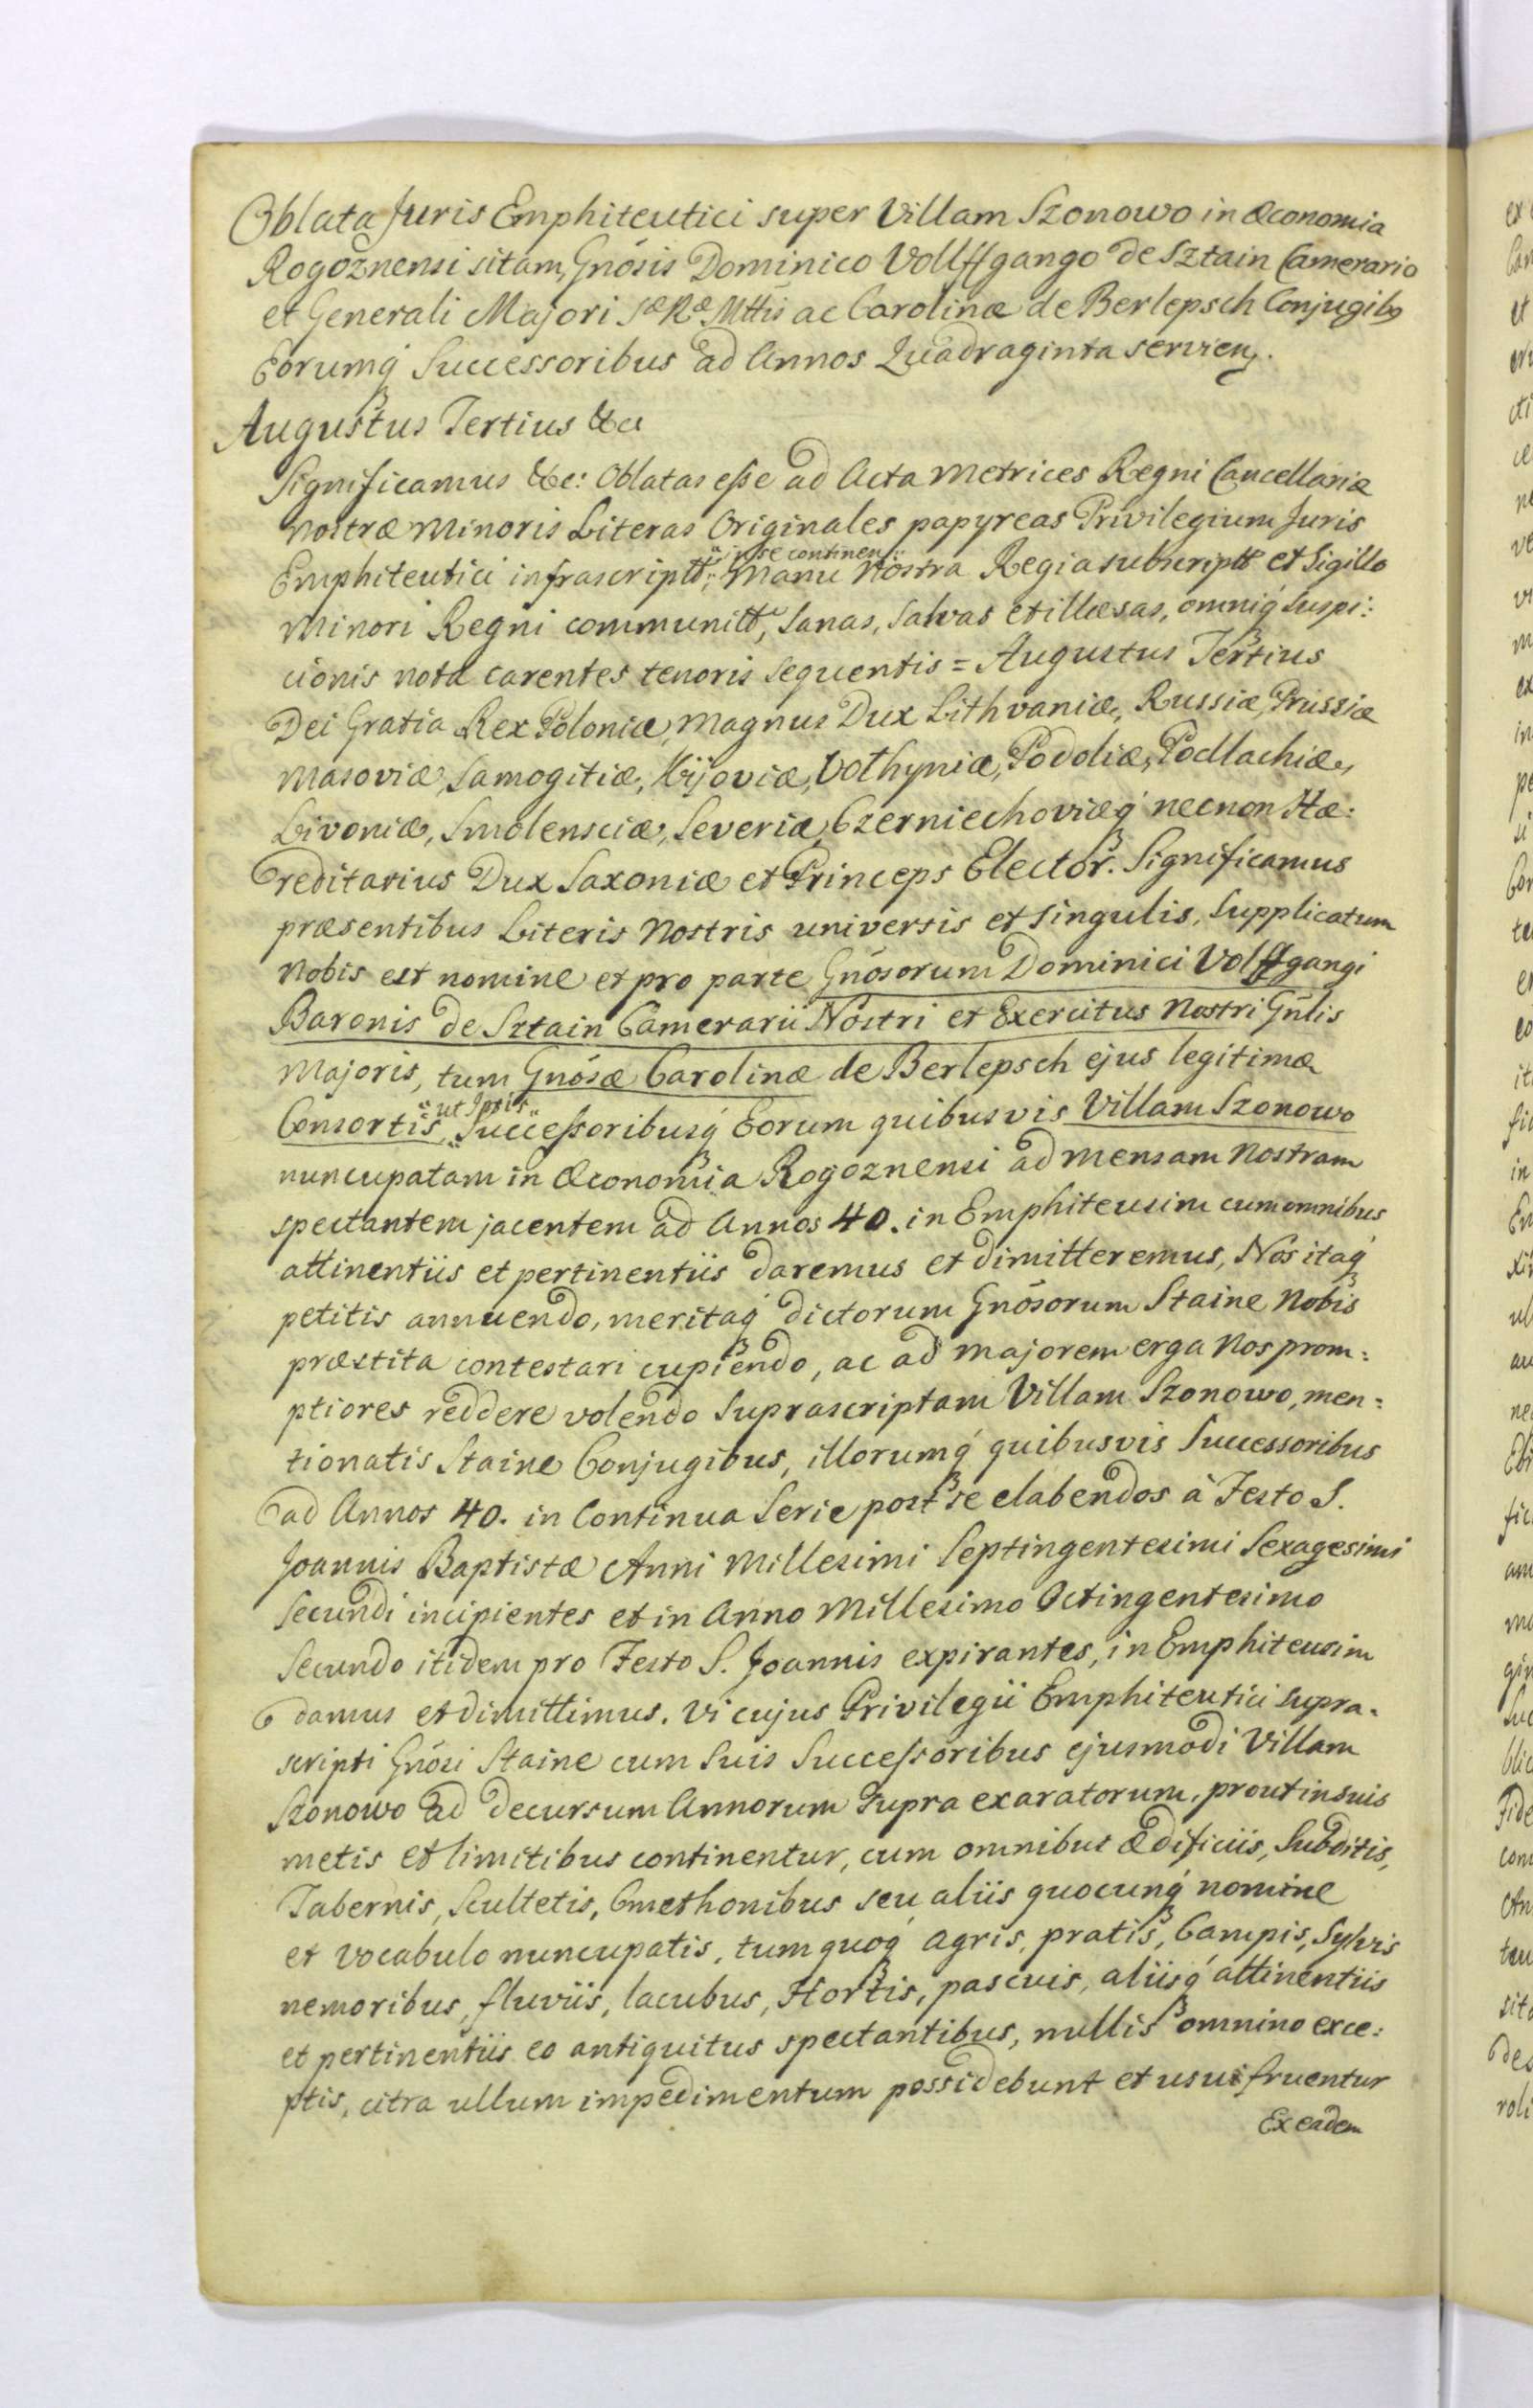 Oblata Juris Emphiteutici super Villam Szonowo in Œconomia
Rogoznensi sitam, Gnosis Dominico Vollffgango de Sztain Camerario
et Generali Majori Sæ Ræ Mttis ac Carolinæ de Berlepsch Conjugibs
Eorumq́ Successoribus ad Annos Quadraginta servien.
Augustus Tertius &c
Significamus &c: Oblatas esse ad Acta Metrices Regni Cancellariæ
Nostræ Minoris Literas Originales papyreas Privilegium Juris
Emphiteutici infrascriptt, "in se continen:" Manu Nostra Regia subscriptt et Sigillo
Minori Regni communitt, Sanas, Salvas et illæsas, omniq́ Suspi:
cionis nota carentes tenoris sequentis = Augustus Tertius
Dei Gratia Rex Poloniæ, Magnus Dux Lithvaniæ, Russiæ, Prussiæ
Masoviæ, Samogitiæ, Kijoviæ, Volhyniæ, Podoliæ, Podlachiæ,
Livoniæ, Smolensciæ, Severiæ, Czerniechoviæq́ necnon Hæ:
reditarius Dux Saxoniæ et Princeps Elector. Significamus
præsentibus Literis Nostris universis et singulis, Supplicatum
Nobis est nomine et pro parte Gnósorum Dominici Volffgangi
Baronis de Sztain Camerarii Nostri et Exercitus Nostri Gnlis
Majoris, tum Gnósæ Carolinæ de Berlepsch ejus legitimæ
Consortis "ut Ipsis" Successoribusq́ Eorum quibusvis Villam Szonowo
nuncupatam in Œconomia Rogoznensi ad mensam Nostram
spectantem jacentem ad Annos 40. in Emphiteusim cum omnibus
attinentiis et pertinentiis daremus et dimitteremus, Nos itaq́
petitis annuendo, meritaq́ dictorum Gnósorum Staine Nobis
præstita contestari cupiendo, ac ad majorem erga Nos prom:
ptiores reddere volendo Suprascriptam Villam Szonowo, men:
tionatis Staine Conjugibus, illorumq́ quibusvis Successoribus
ad Annos 40. in Continua Serie post se elabendos à Festo S.
Joannis Baptistæ Anni Millesimi Septingentesimi Sexagesimi
Secundi incipientes et in Anno Millesimo Octingentesimo
Secundo itidem pro Festo S. Joannis expirantes, in Emphiteusim
damus et dimittimus. Vi cujus Privilegii Emphiteutici Supra.
scripti Gnósi Staine cum Suis Successoribus ejusmodi Villam
Szonowo ad decursum Annorum supra exaratorum, prout in suis
metis et limitibus continentur, cum omnibus Ædificiis, Subditis,
Tabernis, Scultetis, Cmethonibus seu aliis quocunq́ nomine
et vocabulo nuncupatis, tum quoq́ agris, pratis, Campis, Sylvis
nemoribus, fluviis, lacubus, Hortis, pascuis, aliisq́ attinentiis
et pertinentiis eo antiquitus spectantibus, nullis omnino exce:
ptis, citra ullum impedimentum possidebunt et usui fruentur
Ex eadem